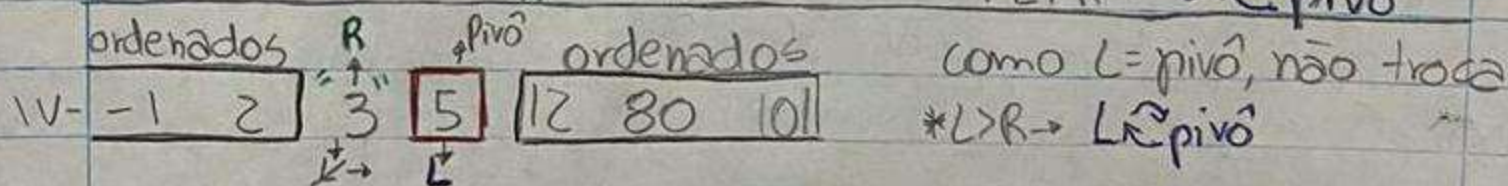 ordenados R Pivô ordenados como L=pivô, não troca
IV- -1 2 "3" 5 12 80 101 *L>R→ L pivô
L→ L